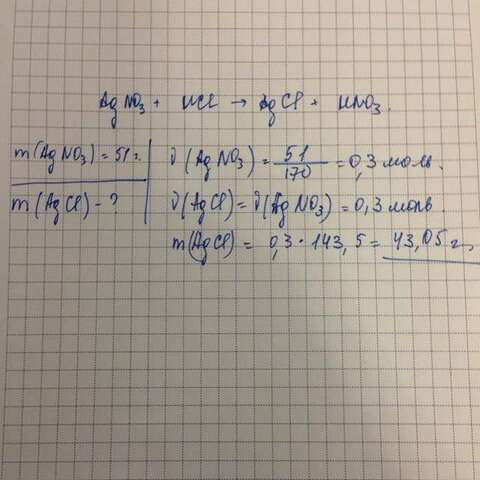 AgNO₃ + HCl → AgCl + HNO₃.
m(AgNO₃) = 51 г.
m(AgCl) - ?
ν(AgNO₃) = 51/170 = 0,3 моль.
ν(AgCl) = ν(AgNO₃) = 0,3 моль.
m(AgCl) = 0,3 · 143,5 = 43,05 г,